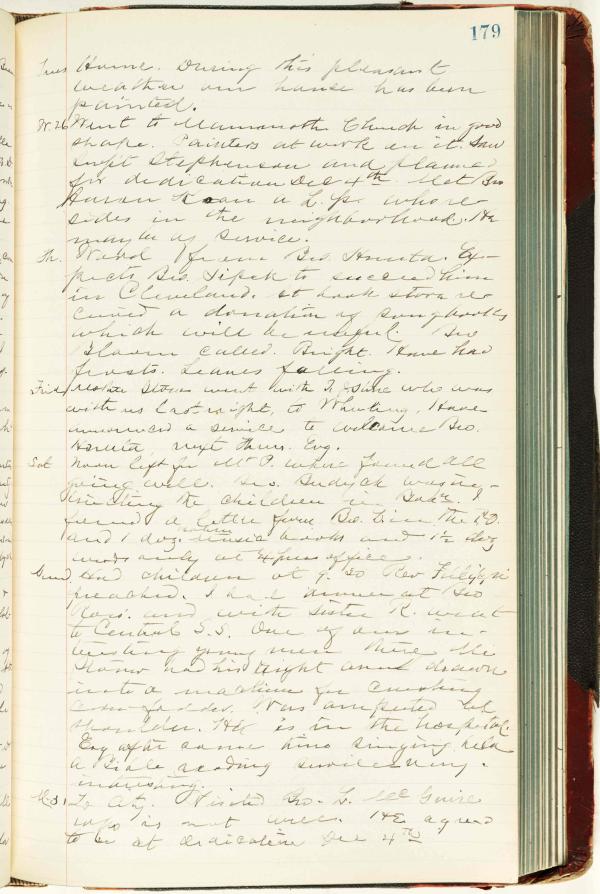 179
Tues Home. During this pleasant
weather our house has been
painted.
W. 26 Went to Mammoth Church in good
shape. Painters at work on it. Saw
Supt Stephenson and planned
for dedication Dec 4th. Met Bro
a L. P. who re
sides in the neighborhood. He
may be of service.
Th. Word from Bro. Hruta. Ex-
pects Bro. to succeed him
in Cleveland. At book store re
ceived a donation of song books
which will be useful. Bro
called. Bright. Have had
frosts. Leaves falling.
Frid went with who was
with us last night, to Wheeling. Have
announced a service to welcome Bro.
Hruta, next Thurs. Evg.
Sat Noon left for Mt P. where found all
going well. Bro. was in-
structing the children in I
found a letter from Bro. the
and 1 doz. music books and 1½ doz
words only at Express office.
Sund Had children at 9.30 Rev
preached. I had dinner at Bro
and with Sister R. went
to Central S.S. One of our in-
teresting young men there
had his right arm drawn
into a machine for crushing
corn fodder. Was amputated at
shoulder. He is in the hospital.
Evg after some time singing held
a Bible reading service
interesting.
Mo. 1 To City. Visited Bro. L. McGuire
who is not well. He agreed
to be at dedication Dec 4th